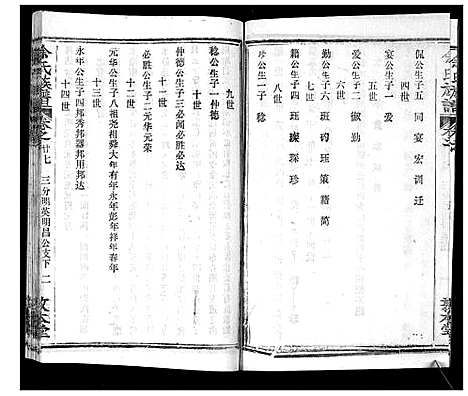 侃公生子五 同 宴 宏 訓 迁
四世
宴公生子一 愛
五世
愛公生子二 俶 勤
六世
勤公生子四 班 玙 珏 策 籍 简
七世
班公生子四 琛 珍
八世
珍公生子一 稔
九世
稔公生子一 仲德
十世
仲德公生子三 必闻 必胜 必达
十一世
必胜公生子二 元华 元荣
十二世
元华公生子八 祖尧 祖舜 大年 有年 永年 彭年 祥年 春年
十三世
永年公生子四 邦秀 邦器 邦用 邦达
十四世
余氏族譜
卷之
廿七
三分明英明昌公支下
二
敦本堂